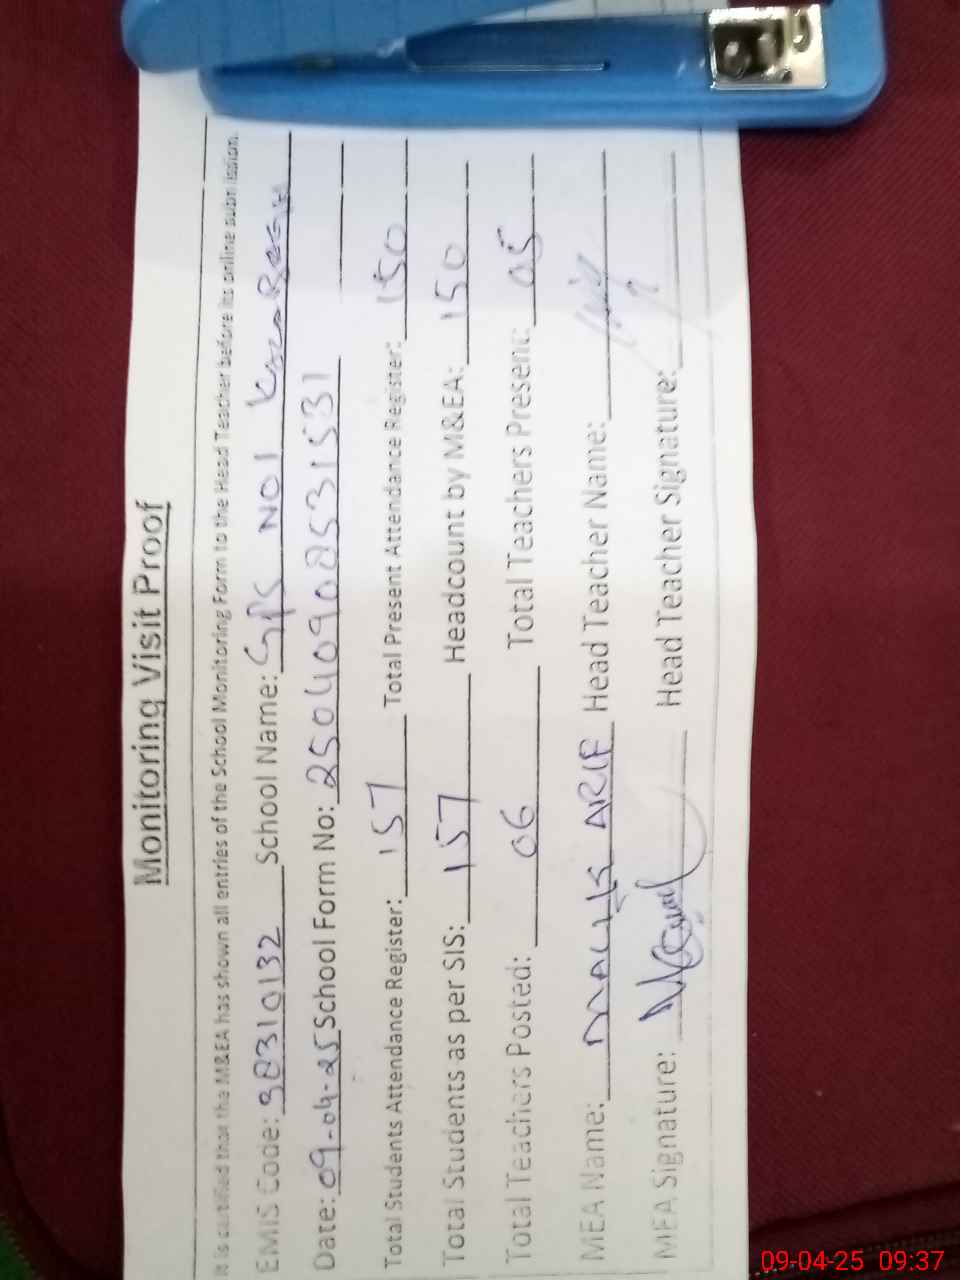 Monitoring Visit Proof
It is certified that the M&EA has shown all entries of the School Monitoring Form to the Head Teacher before its online submission.
EMIS Code: 38310132 School Name: GPS NO1
Date: 09-04-25 School Form No: 2504090853 1531
Total Students Attendance Register: 157 Total Present Attendance Register: 150
Total Students as per SIS: 157 Headcount by M&EA: 150
Total Teachers Posted: 06 Total Teachers Present: 05
MEA Name: MALIK ARIF Head Teacher Name:
MEA Signature: Head Teacher Signature:
09-04-25 09:37